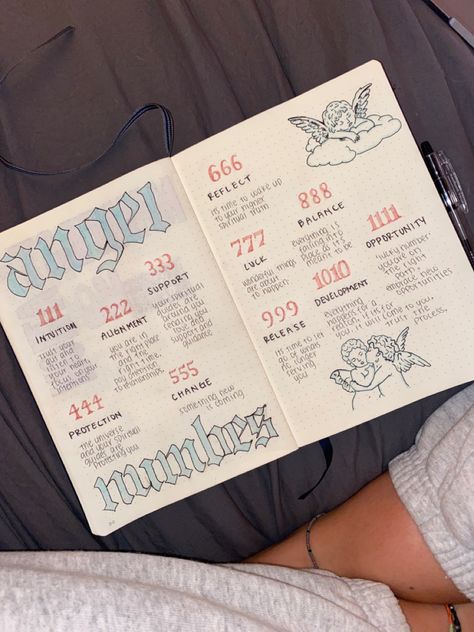 angel
111
INTUITION
trust your
gut and
listen to
your heart,
focus on your
intentions
222
ALIGNMENT
you are in
the right place
at the
right time.
pay attention
333
SUPPORT
your spiritual
guides are
around you
sending you
love and
support and
guidance
444
PROTECTION
the universe
and your spiritual
guides are
protecting you
555
CHANGE
something new
is coming
numbers
666
REFLECT
it's time to wake up
to your higher
spiritual truth
777
LUCK
wonderful things
are about
to happen
888
BALANCE
everything is
falling into
place as it is
meant to be
999
RELEASE
it's time to let
go of whats
no longer
serving
you
1010
DEVELOPMENT
everything
happens for a
reason. if it is for
you, it will come to you.
trust the
process.
1111
OPPORTUNITY
"lucky number"
you are on
the right
path -
embrace new
opportunities